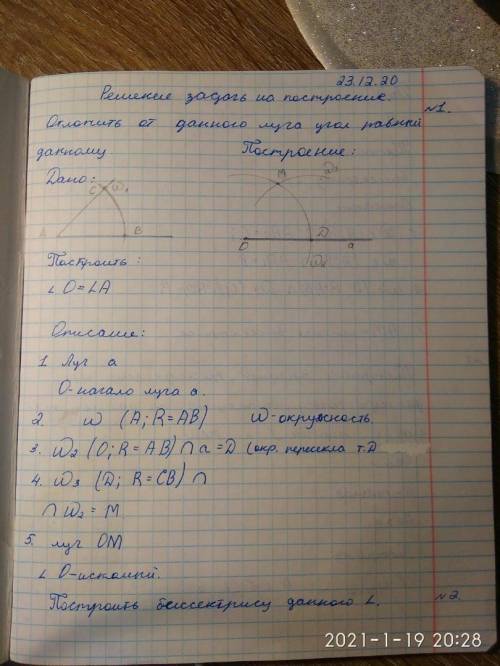 23.12.20
Решение задачь на построение.
№1.
Отложить от данного луча угол равный
данному
Построение:
Дано:
C ω₁
M ω₃
A B
O D a
ω₂
Построить:
∠O=∠A
Описание:
1. Луч a
O-начало луча a.
2. ω (A; R=AB) ω-окружность
3. ω₂ (O; R=AB) ∩ a = D (окр. пересекла т.D
4. ω₃ (D; R=CB) ∩
∩ ω₂ = M
5. луч OM
∠ O-искомый.
Построить бессектрису данного ∠. №2.
2021-1-19 20:28